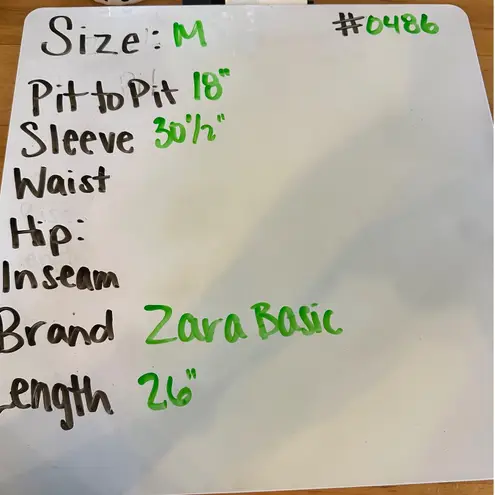 Size: M #0486
Pit to Pit 18"
Sleeve 30 1/2"
Waist
Hip:
Inseam
Brand Zara Basic
Length 26"